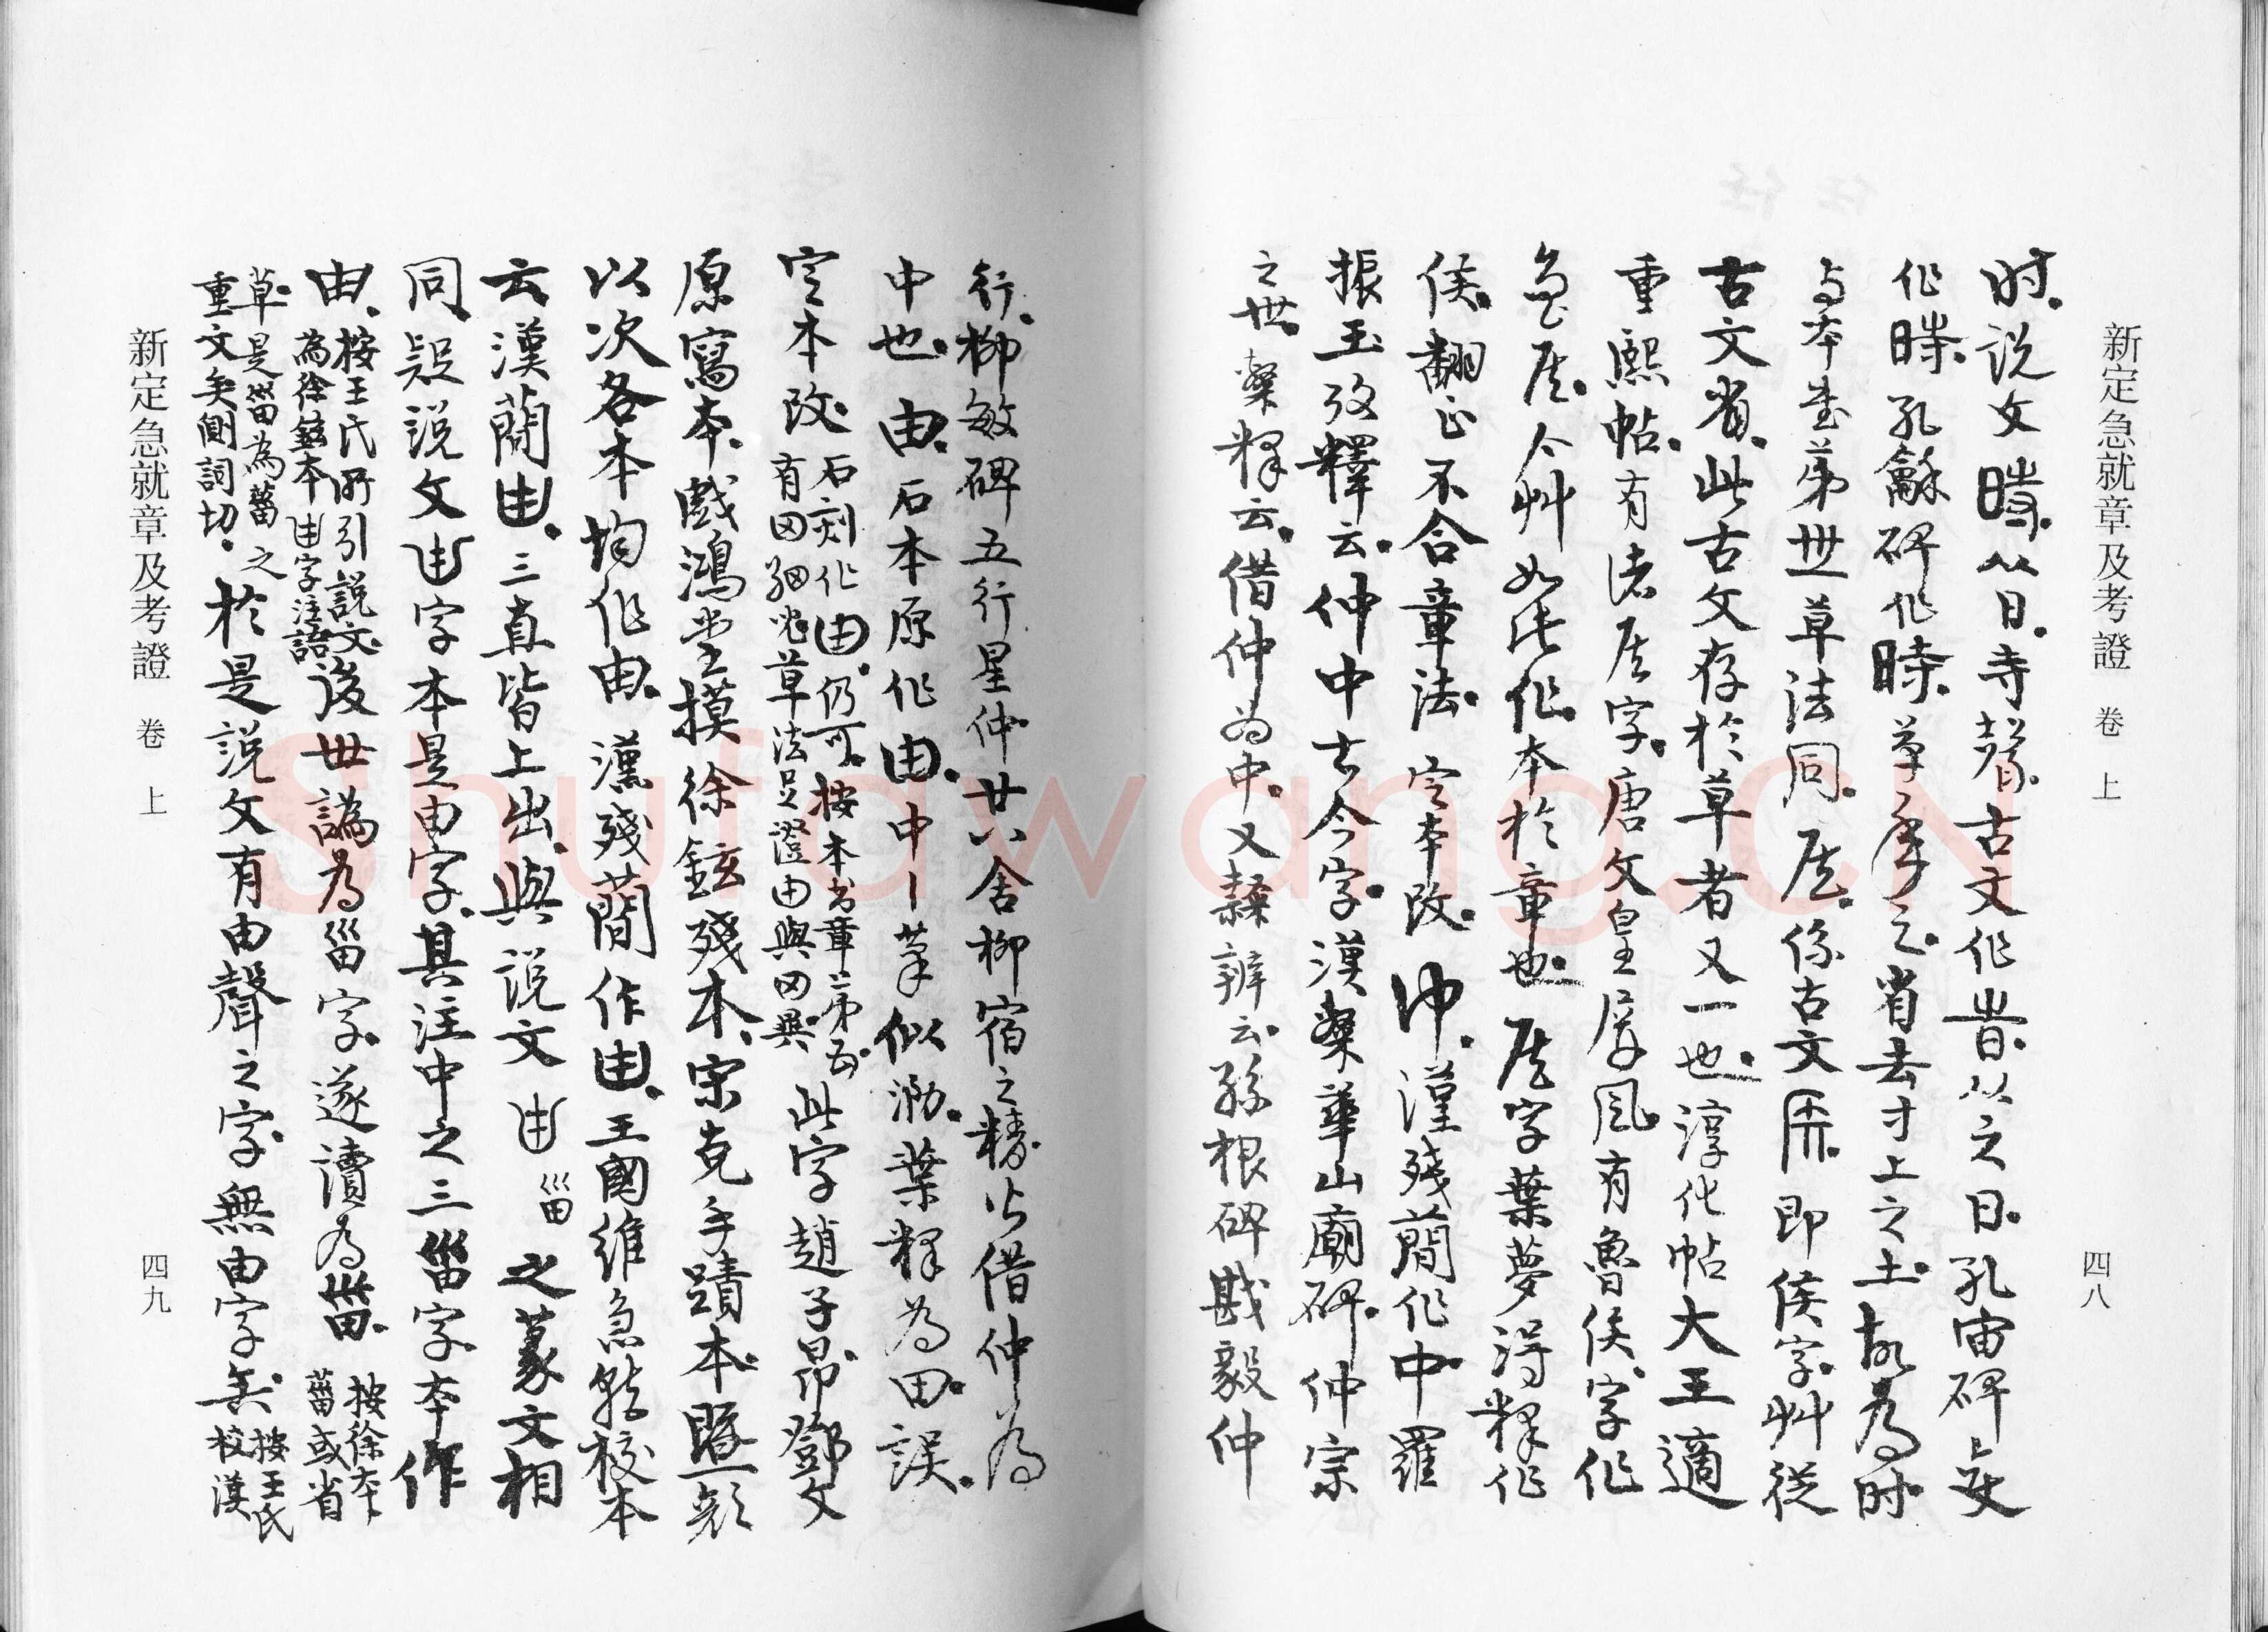 新定急就章及考證 卷上 四八
时。说文時。从日。寺聲。古文作旹。从之日。孔宙碑
作時。孔龢碑作時。草之。省去寸上之土。故为时
与本书第世草法同。侯。係古文𥎦。即侯字。艸從
古文省。此古文存於草者又一也。淳化帖大王適
重熙帖。有诸侯字。唐文皇屏风。有魯侯。字作
。今艸如此作。本於章也。侯字葉夢得释作
侯。翻正不合章法。定本改。仲。漢残蕳作中。羅
振玉攷釋云。仲中古今字。漢樊華山廟碑。仲宗
之世。樊释云。借仲为中。又隸辨云孫根碑戡毅仲
行。柳敏碑五行星仲廿八舍柳宿之精。皆借仲为
中也。由。石本原作由。中丨筆似泐。葉释为田。誤。
定本改。石刻作由。仍可。按本书章第五。有田細兆草法足證由與田異。此字趙子昂。鄧文
原寫本。戲鴻堂摸徐鉉殘本。宋克手蹟本。暨
以次各本均作由。漢殘蕳作由。王國维急就校本
云漢蕳由。三直皆上出。與说文甾之篆文相
同。疑说文甾字本是由字。其注中之三甾字本作
由。按王氏所引説文。為徐鉉本甾字注語。後世譌为甾字。遂讀为葘。按徐本葘或省
草。是甾為葘之重文矣。側詞切。於是説文有由聲之字。無由字矣。按王氏校漢
新定急就章及考證 卷上 四九